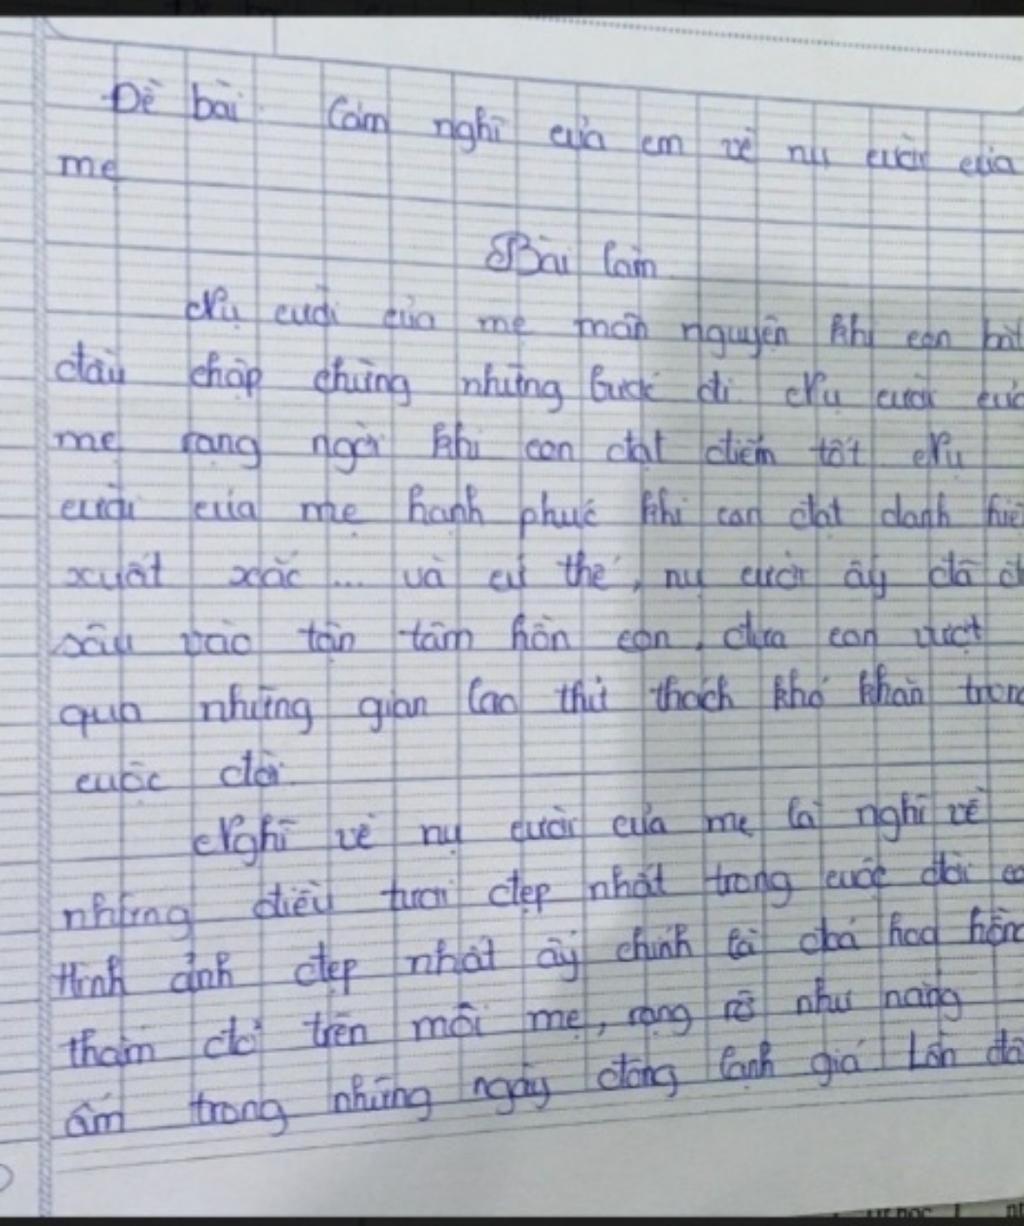 Đề bài. Cảm nghĩ của em về nụ cười của
mẹ
Bài làm
Nụ cười của mẹ mãn nguyện khi con bắt
đầu chập chững những bước đi. Nụ cười của
mẹ rạng ngời khi con đạt điểm tốt. Nụ
cười của mẹ hạnh phúc khi con đạt danh
xuất xắc ... và cứ thế, nụ cười ấy đã
sâu vào tận tâm hồn con, đưa con vượt
qua những gian lao thử thách khó khăn trong
cuộc đời
Nghĩ về nụ cười của mẹ là nghĩ về
những điều tươi đẹp nhất trong cuộc đời
Hình ảnh đẹp nhất ấy chính là đoá hoa hồng
thắm đỏ trên môi mẹ, rạng rỡ như nắng
ấm trong những ngày đông lạnh giá. Lần